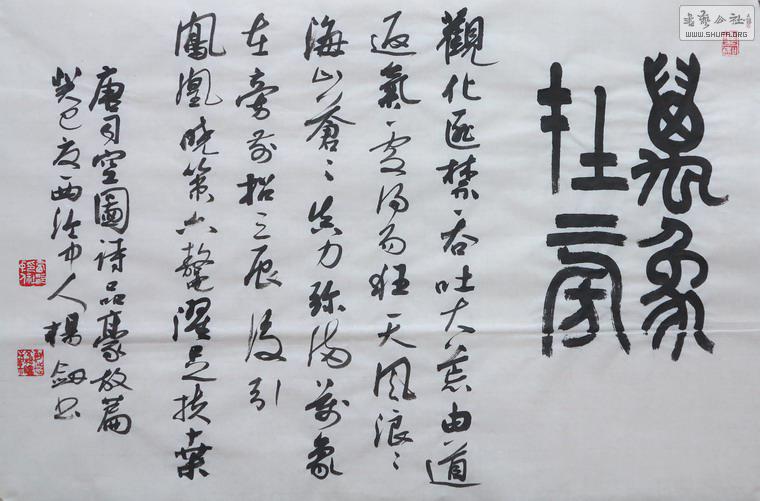 萬象
在旁
觀化匪禁吞吐大荒由道
返氣處得易狂天風浪々
海山蒼々真力彌滿萬象
在旁前招三辰後引
鳳凰曉策六鰲濯足扶桑
唐司空圖詩品豪放篇
癸巳夏西泠中人楊劍書
书艺公社
WWW.SHUFA.ORG